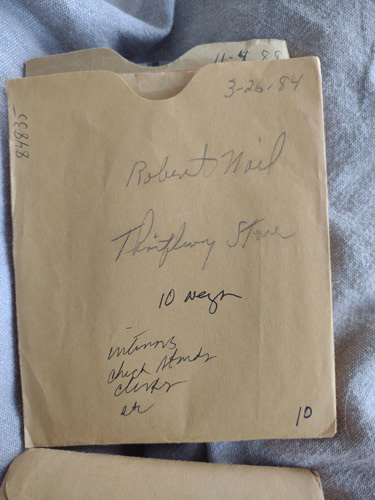 11-4 88
3-26-84
84835
Robert Nail
Thriftway Store
10 negs
interiors
check stands
clerks
etc
10